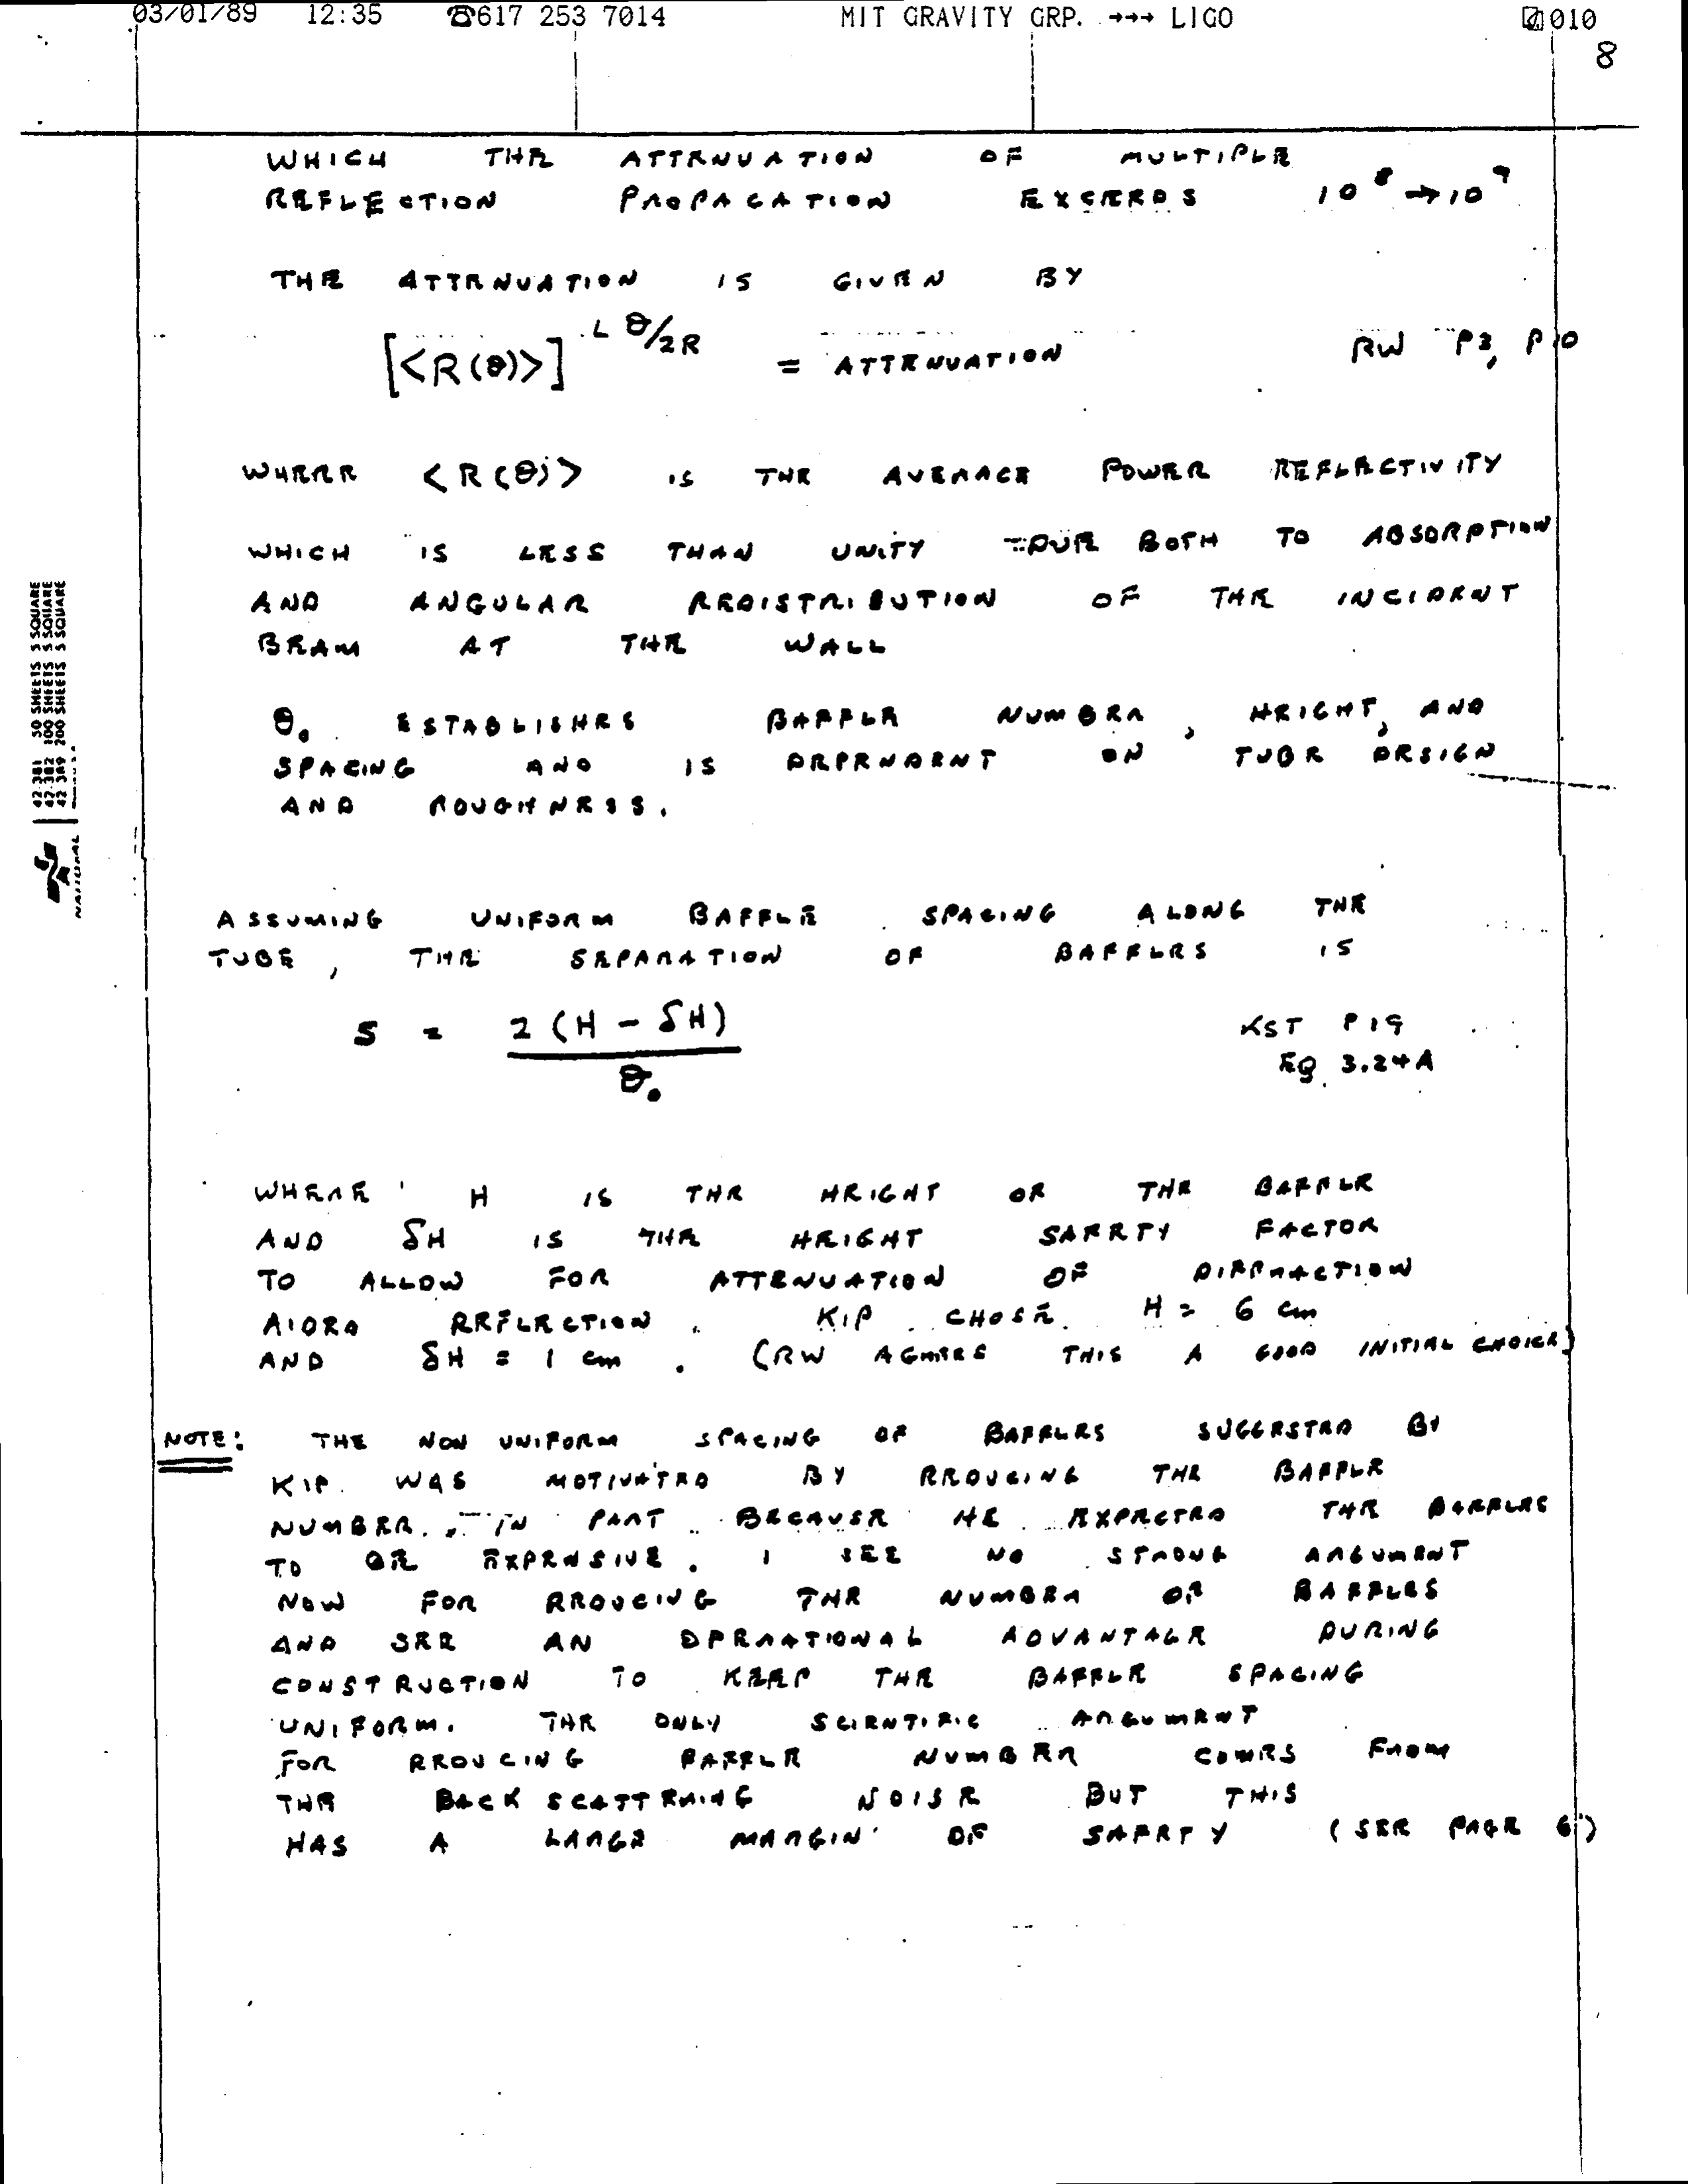 03/01/89 12:35 ☎617 253 7014 MIT GRAVITY GRP. →→→ LIGO 010
8
WHICH THE ATTENUATION OF MULTIPLE
REFLECTION PROPAGATION EXCEEDS 10^8 → 10^9
THE ATTENUATION IS GIVEN BY
[<R(θ)>]^{Lθ/2R} = ATTENUATION RW P3, P10
WHERE <R(θ)> IS THE AVERAGE POWER REFLECTIVITY
WHICH IS LESS THAN UNITY DUE BOTH TO ABSORPTION
AND ANGULAR REDISTRIBUTION OF THE INCIDENT
BEAM AT THE WALL
θ₀ ESTABLISHES BAFFLE NUMBER, HEIGHT, AND
SPACING AND IS DEPENDENT ON TUBE DESIGN
AND ROUGHNESS.
ASSUMING UNIFORM BAFFLE SPACING ALONG THE
TUBE, THE SEPARATION OF BAFFLES IS
S = 2(H - δH) / θ₀ KST P19
EQ 3.24A
WHERE H IS THE HEIGHT OF THE BAFFLE
AND δH IS THE HEIGHT SAFETY FACTOR
TO ALLOW FOR ATTENUATION OF DIFFRACTION
AIDED REFLECTION. KIP CHOSE H = 6 cm
AND δH = 1 cm. (RW AGREES THIS A GOOD INITIAL CHOICE)
NOTE: THE NON UNIFORM SPACING OF BAFFLES SUGGESTED BY
KIP WAS MOTIVATED BY REDUCING THE BAFFLE
NUMBER, IN PART BECAUSE HE EXPECTED THE BAFFLES
TO BE EXPENSIVE. I SEE NO STRONG ARGUMENT
NOW FOR REDUCING THE NUMBER OF BAFFLES
AND SEE AN OPERATIONAL ADVANTAGE DURING
CONSTRUCTION TO KEEP THE BAFFLE SPACING
UNIFORM. THE ONLY SCIENTIFIC ARGUMENT
FOR REDUCING BAFFLE NUMBER COMES FROM
THE BACK SCATTERING NOISE BUT THIS
HAS A LARGE MARGIN OF SAFETY (SEE PAGE 6)
42-381 50 SHEETS 5 SQUARE
42-382 100 SHEETS 5 SQUARE
42-389 200 SHEETS 5 SQUARE
NATIONAL